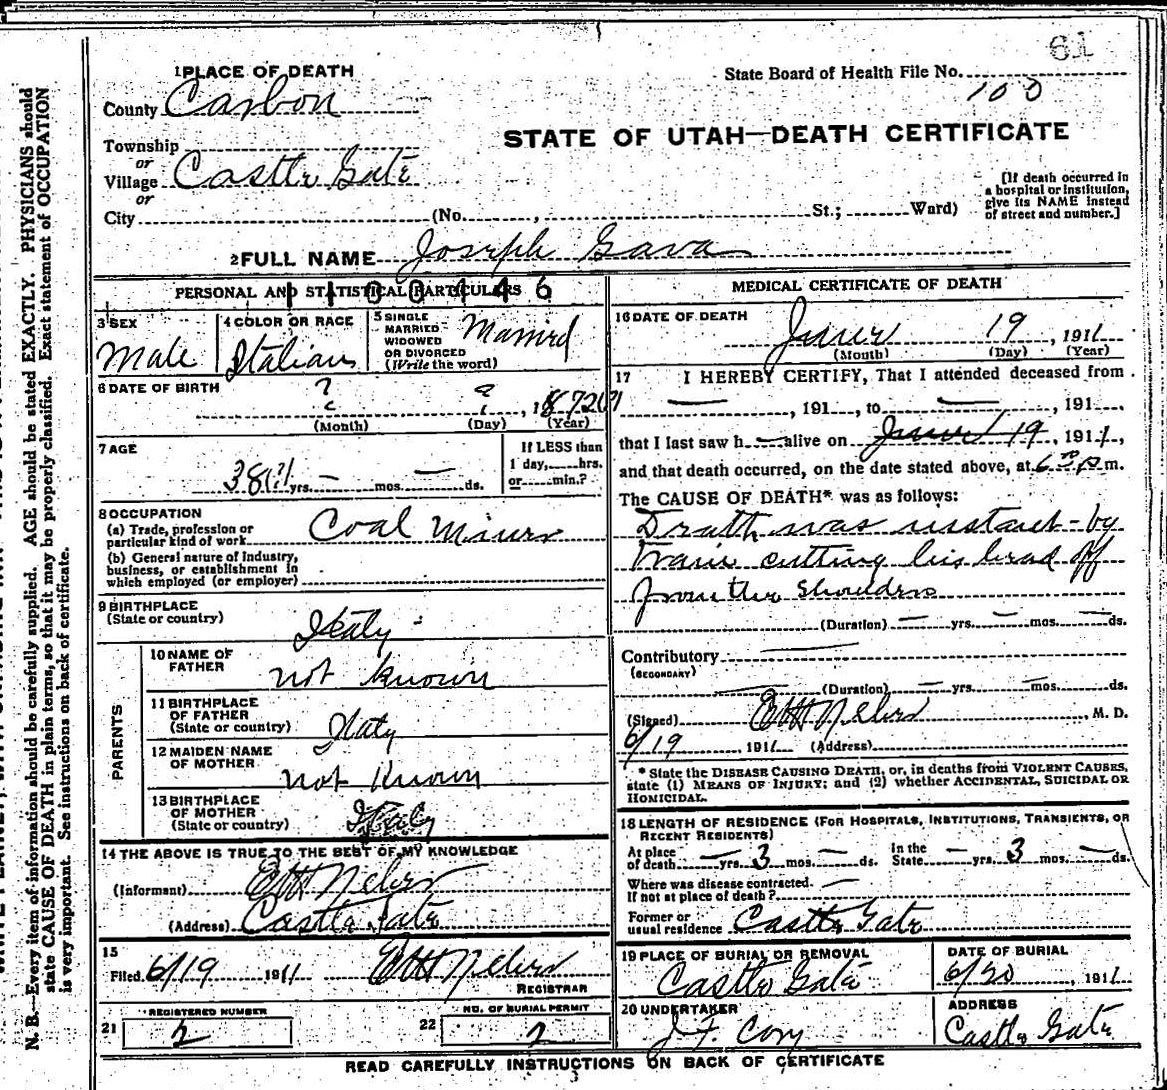 61
1 PLACE OF DEATH
State Board of Health File No. 100
County Carbon
STATE OF UTAH—DEATH CERTIFICATE
Township
or
Village Castle Gate
or
City (No. , St.; Ward)
[If death occurred in
a hospital or institution,
give its NAME instead
of street and number.]
2 FULL NAME Joseph Gava
PERSONAL AND STATISTICAL PARTICULARS
3 SEX
Male
4 COLOR OR RACE
Italian
5 SINGLE
MARRIED
WIDOWED
OR DIVORCED
(Write the word)
Married
6 DATE OF BIRTH
? ? , 1872(?)
(Month) (Day) (Year)
7 AGE
38(?) yrs. — mos. — ds.
If LESS than
1 day, hrs.
or min.?
8 OCCUPATION
(a) Trade, profession or
particular kind of work Coal Miner
(b) General nature of Industry,
business, or establishment in
which employed (or employer)
9 BIRTHPLACE
(State or country)
Italy
PARENTS
10 NAME OF
FATHER
not known
11 BIRTHPLACE
OF FATHER
(State or country)
Italy
12 MAIDEN NAME
OF MOTHER
not known
13 BIRTHPLACE
OF MOTHER
(State or country)
Italy
14 THE ABOVE IS TRUE TO THE BEST OF MY KNOWLEDGE
(Informant)
(Address) Castle Gate
15
Filed 6/19 1911
REGISTRAR
REGISTERED NUMBER
21 2
NO. OF BURIAL PERMIT
22 2
MEDICAL CERTIFICATE OF DEATH
16 DATE OF DEATH
June 19 , 1911
(Month) (Day) (Year)
17 I HEREBY CERTIFY, That I attended deceased from
— , 191 , to — , 191 ,
that I last saw h — alive on June 19 , 1911,
and that death occurred, on the date stated above, at 6 P m.
The CAUSE OF DEATH* was as follows:
Death was instant - by
train cutting his head off
from the shoulders
(Duration) — yrs. — mos. — ds.
Contributory —
(SECONDARY)
(Duration) — yrs. — mos. ds.
(Signed) , M. D.
6/19 , 1911 (Address)
* State the DISEASE CAUSING DEATH, or, in deaths from VIOLENT CAUSES,
state (1) MEANS OF INJURY; and (2) whether ACCIDENTAL, SUICIDAL OR
HOMICIDAL.
18 LENGTH OF RESIDENCE (FOR HOSPITALS, INSTITUTIONS, TRANSIENTS, OR
RECENT RESIDENTS)
At place
of death — yrs. 3 mos. — ds.
In the
State — yrs. 3 mos. — ds.
Where was disease contracted
If not at place of death? —
Former or
usual residence Castle Gate
19 PLACE OF BURIAL OR REMOVAL
Castle Gate
DATE OF BURIAL
6/20 , 1911
20 UNDERTAKER
J. F. Cory
ADDRESS
Castle Gate
READ CAREFULLY INSTRUCTIONS ON BACK OF CERTIFICATE
N. B.—Every item of information should be carefully supplied. AGE should be stated EXACTLY. PHYSICIANS should
state CAUSE OF DEATH in plain terms, so that it may be properly classified. Exact statement of OCCUPATION
is very important. See instructions on back of certificate.